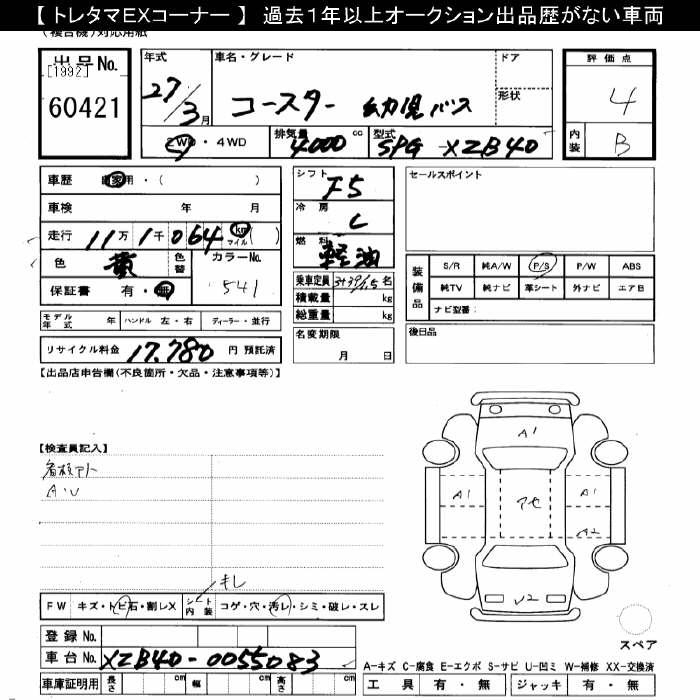 【トレタマEXコーナー】 過去1年以上オークション出品歴がない車両
(複合機)対応用紙
出品No.
[1992]
60421
年式
27/3月
車名・グレード
コースター 幼児バス
ドア
形状
2WD・4WD
排気量
4000cc
型式
SPG-XZB40
評価点
4
内装
B
車歴
自家用・( )
車検 年 月
走行 11万1千064 km マイル ( )
色 黄
色替
カラーNo.
541
保証書 有・無
モデル年式 年
ハンドル 左・右
ディーラー・並行
リサイクル料金 17,780円 預託済
シフト
F5
冷房
C
燃料
軽油
乗車定員 3+39/1.5名
積載量 kg
総重量 kg
名変期限
月 日
セールスポイント
装備品
S/R 純A/W P/S P/W ABS
純TV 純ナビ 革シート 外ナビ エアB
ナビ型番:
後日品
【出品店申告欄(不良箇所・欠品・注意事項等)】
【検査員記入】
看板アト
A・U
キレ
FW キズ・トビ石・割レX
シート内装 コゲ・穴・汚レ・シミ・破レ・スレ
登録No.
車台No. XZB40-0055083
車庫証明用 長さ cm 幅 cm 高さ cm
A1
A1
アセ
A1
A2
U2
スペア
A-キズ C-腐食 E-エクボ S-サビ U-凹ミ W-補修 XX-交換済
工具 有・無 ジャッキ 有・無